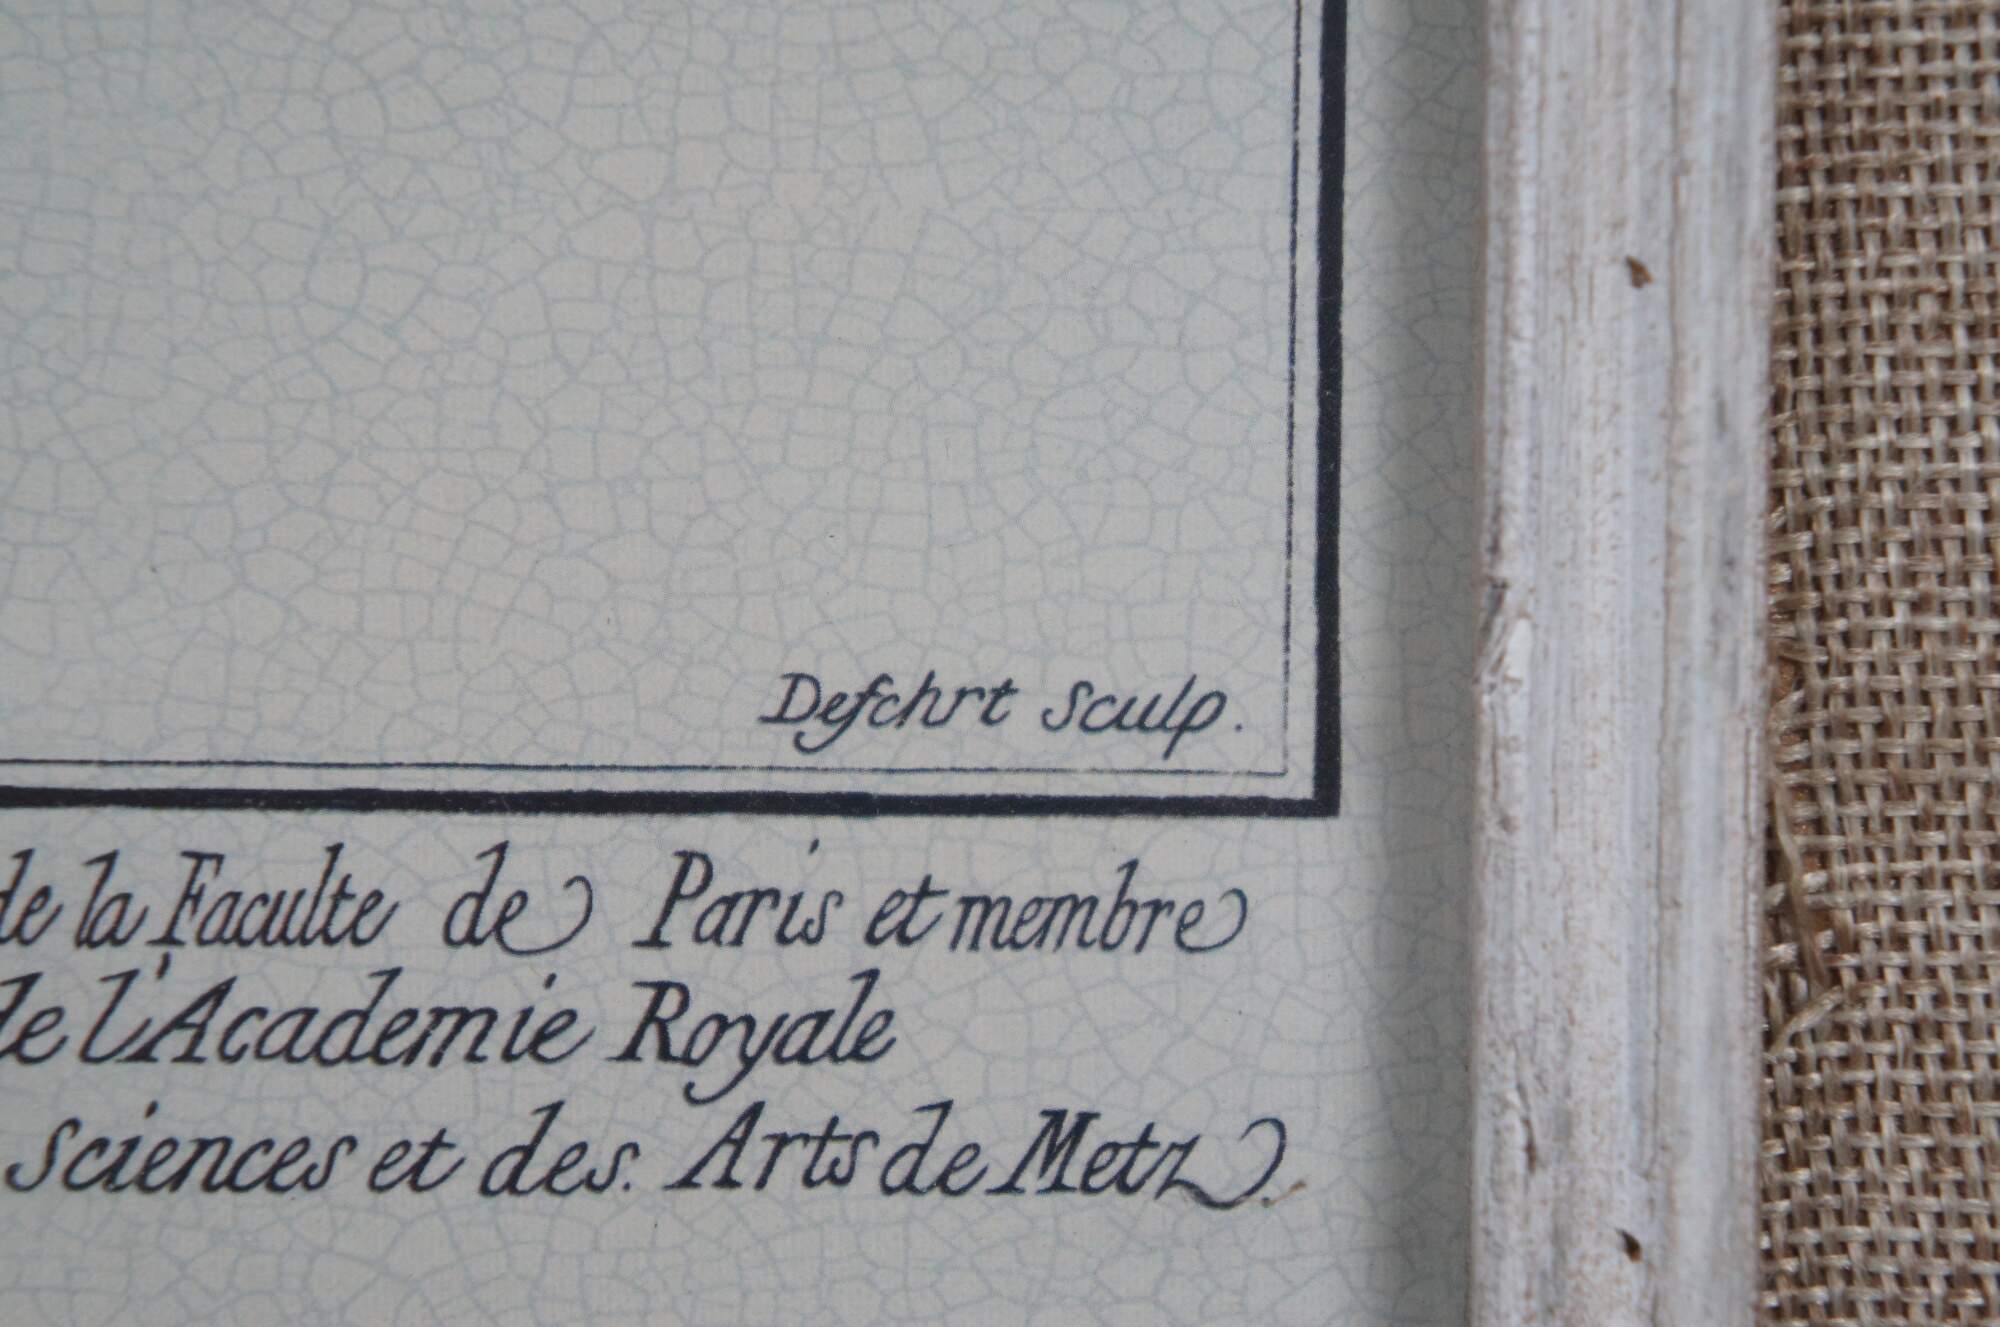 Defchrt Sculp.
de la Faculte de Paris et membre
de l'Academie Royale
Sciences et des. Arts de Metz.